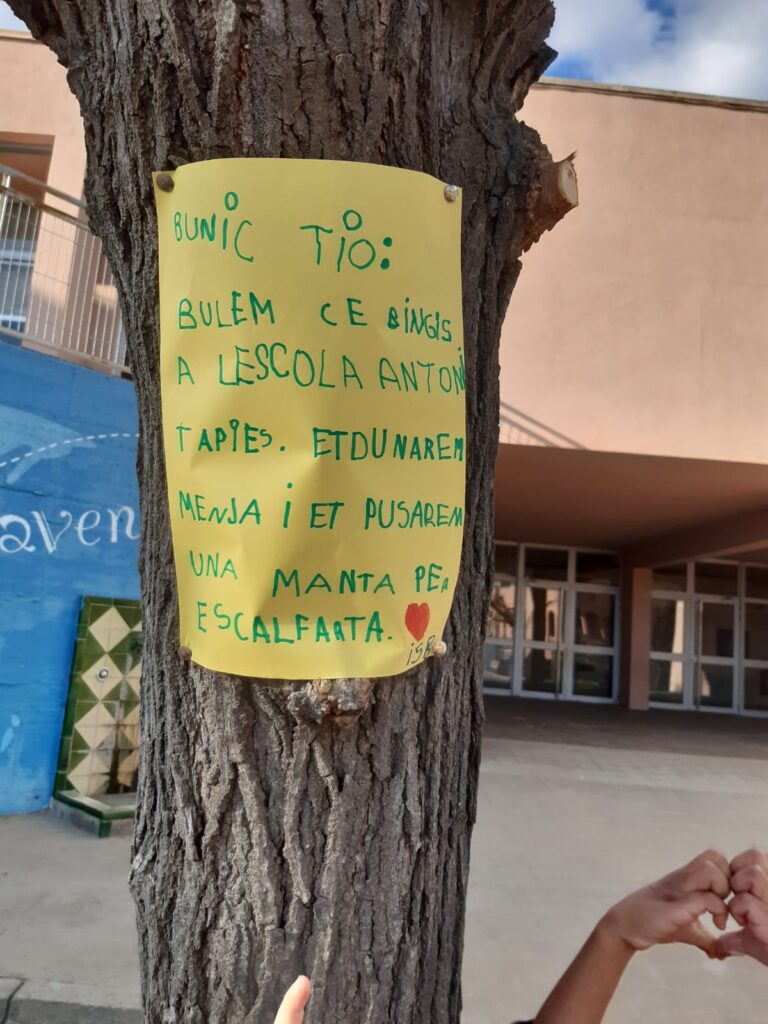 BUNIC TIO:
BULEM CE BINGIS
A LESCOLA ANTONI
TAPIES. ETDUNAREM
MENJA I ET PUSAREM
UNA MANTA PEA
ESCALFARTA.
aven